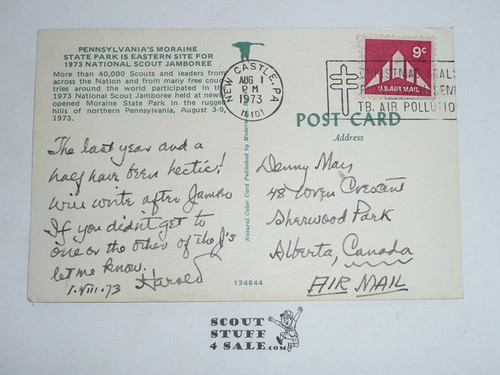 PENNSYLVANIA'S MORAINE
STATE PARK IS EASTERN SITE FOR
1973 NATIONAL SCOUT JAMBOREE
More than 40,000 Scouts and leaders from
across the Nation and from many free coun-
tries around the world participated in the
1973 National Scout Jamboree held at newly
opened Moraine State Park in the rugged
hills of northern Pennsylvania, August 3-9,
1973.
The last year and a
half have been hectic!
Will write after Jambo
If you didn't get to
one or the other of the J's
let me know.
1.VIII.73 Harold
Natural Color Card Published by Modern
NEW CASTLE, PA
AUG 1
PM
1973
16101
9c
U.S. AIR MAIL
TB. AIR POLLUTIO
POST CARD
Address
Denny May
48 Coven Crescent
Sherwood Park
Alberta, Canada
AIR MAIL
134844
SCOUT
STUFF
4 SALE.com